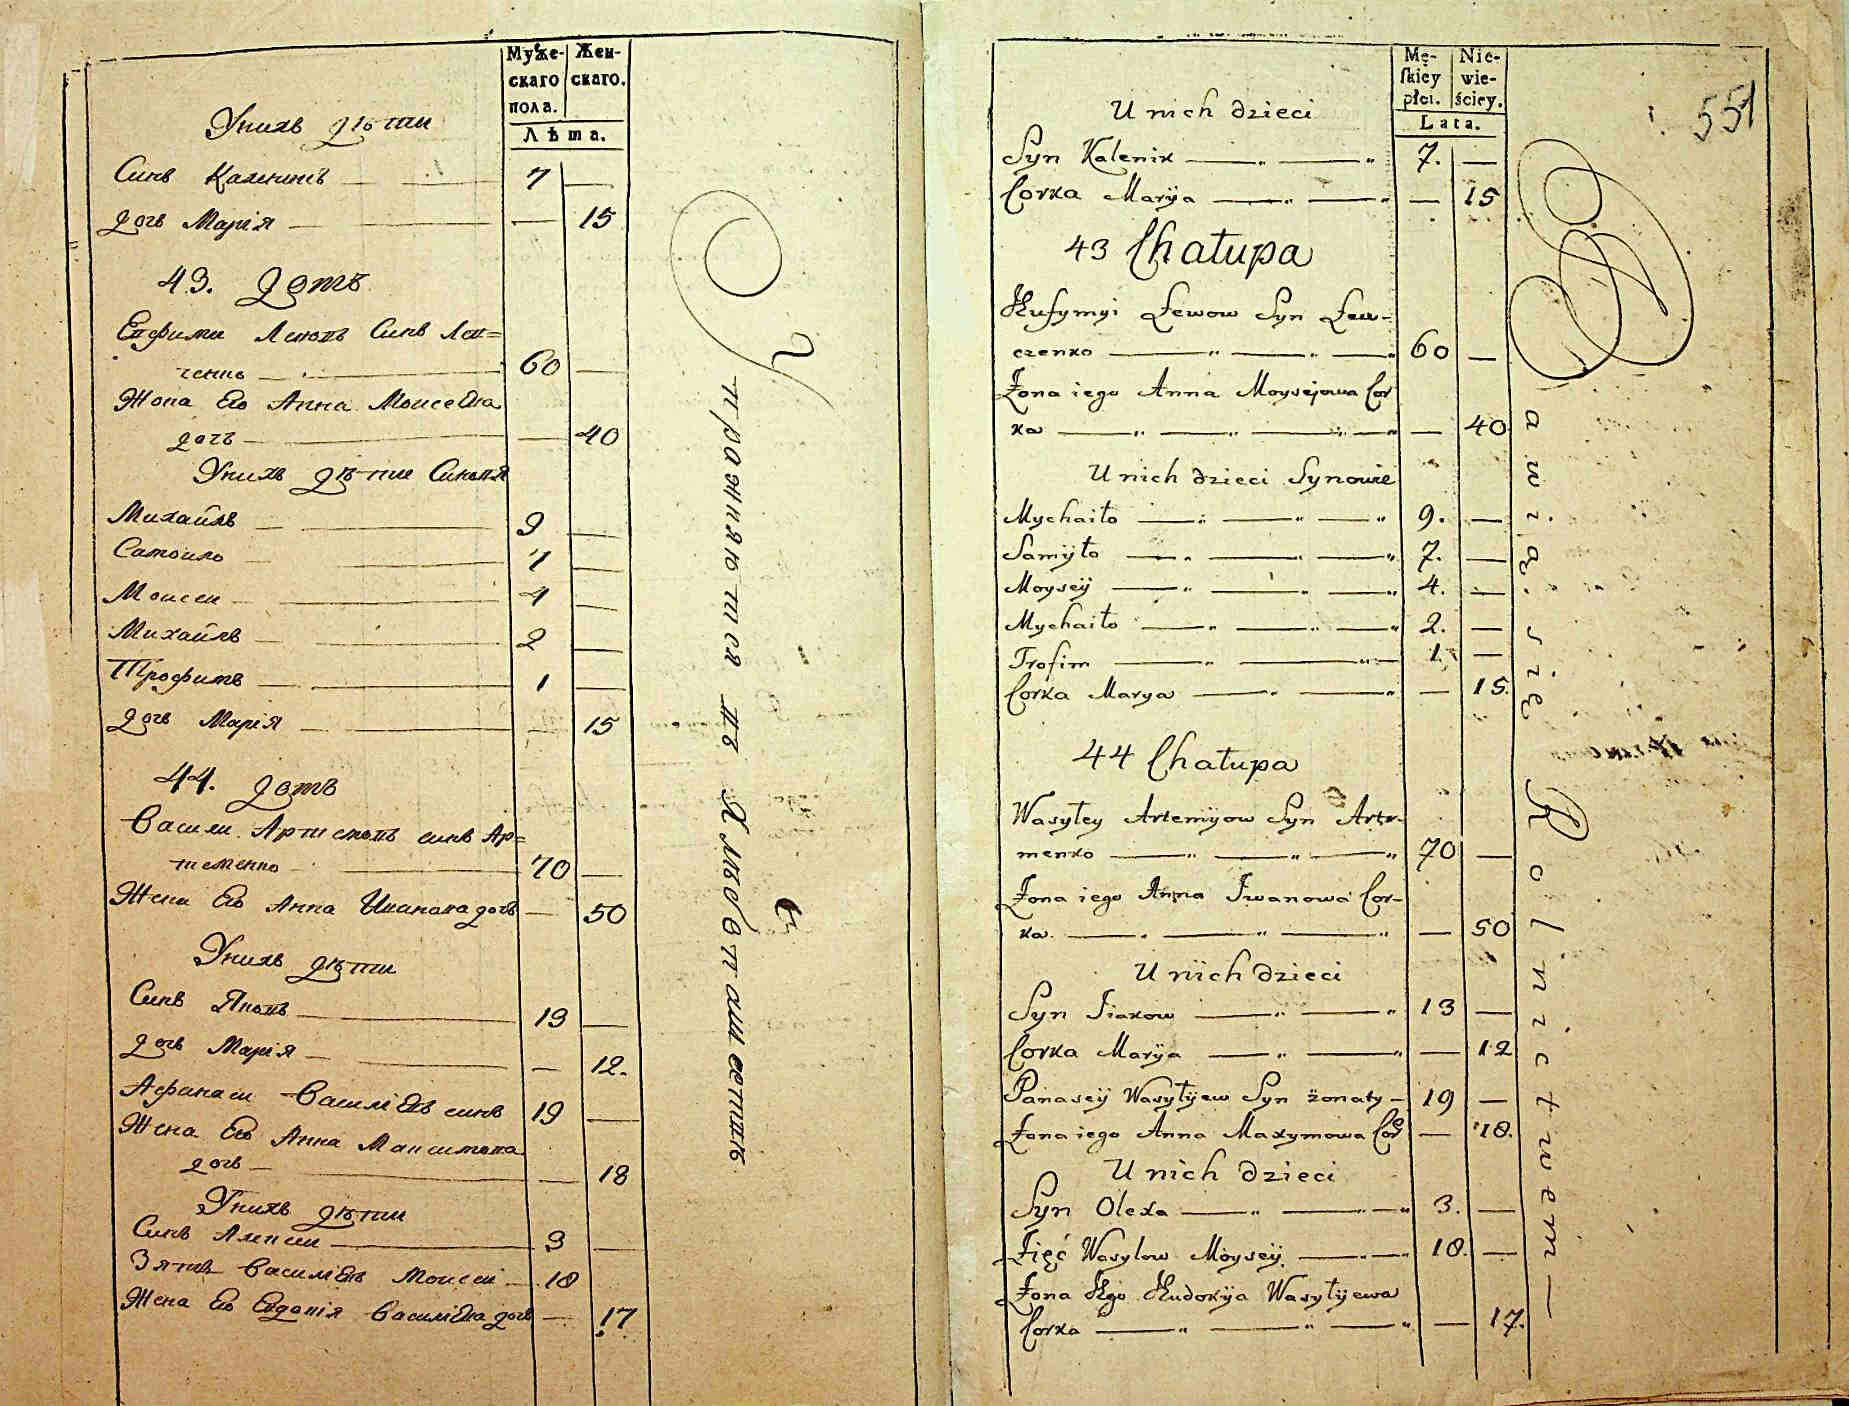 Муже-
скаго
пола.
Жен-
скаго.
Лѣта.
Унихъ дѣти
Синъ Каленикъ — — 7 —
дочь Марія — — — 15
43. домъ
Евфими Левовъ Синъ Лев=
ченко — 60 —
Жона Его Анна Моисеева
дочь — — 40
Унихъ дѣти Синовя
Михайлъ — — 9 —
Самоило — — 7 —
Моисеи — — 4 —
Михайлъ — — 2 —
Трофимъ — — 1 —
дочь Марія — — — 15
44. домъ
Васили Артемовъ синъ Ар=
теменко — 70 —
Жена Его Анна Иванова дочь — 50
Унихъ дѣти
Синъ Яковъ — 13 —
дочь Марія — — — 12.
Афанаси Василіевъ синъ 19 —
Жена Его Анна Максимова
дочь — — 18
Унихъ дѣти
Синъ Алексеи — 3 —
Зять Василіевъ Моисеи — 18
Жена Его Евдокія Василіева дочь — 17
Упражняются въ Хлѣбопашествѣ
551
Mę-
skiey
płci.
Nie-
wie-
ściey.
Lata.
U nich dzieci
Syn Kalenik — „ — „ 7. —
Corka Maryja — „ — „ — 15
43 Chałupa
Hufymyi Lewow Syn Lew-
czenko — „ — „ — „ 60 —
Żona iego Anna Moysejowa Cor
ka — „ — „ — „ — „ — 40
U nich dzieci Synowie
Mychaiło — „ — „ — „ 9. —
Samijło — „ — „ — „ 7. —
Moysey — „ — „ — „ 4. —
Mychaiło — „ — „ — „ 2. —
Trofim — „ — „ — 1. —
Corka Marya — „ — „ — 15.
44 Chałupa
Wasyley Artemijow Syn Arte-
menko — „ — „ — „ 70 —
Żona iego Anna Iwanowa Cor-
ka — „ — „ — „ — 50
U nich dzieci
Syn Iiakow — „ — „ 13 —
Corka Maryja — „ — „ — 12
Panasey Wasylijew Syn żonaty — 19 —
Żona iego Anna Maxymowa Cor — 18.
U nich dzieci
Syn Olexa — „ — „ — „ 3. —
Zięć Wasylow Moysey — „ — „ 18. —
Żona Jego Hudokija Wasylijewa
Corka — „ — „ — „ — 17.
Bawią się Rolnictwem —